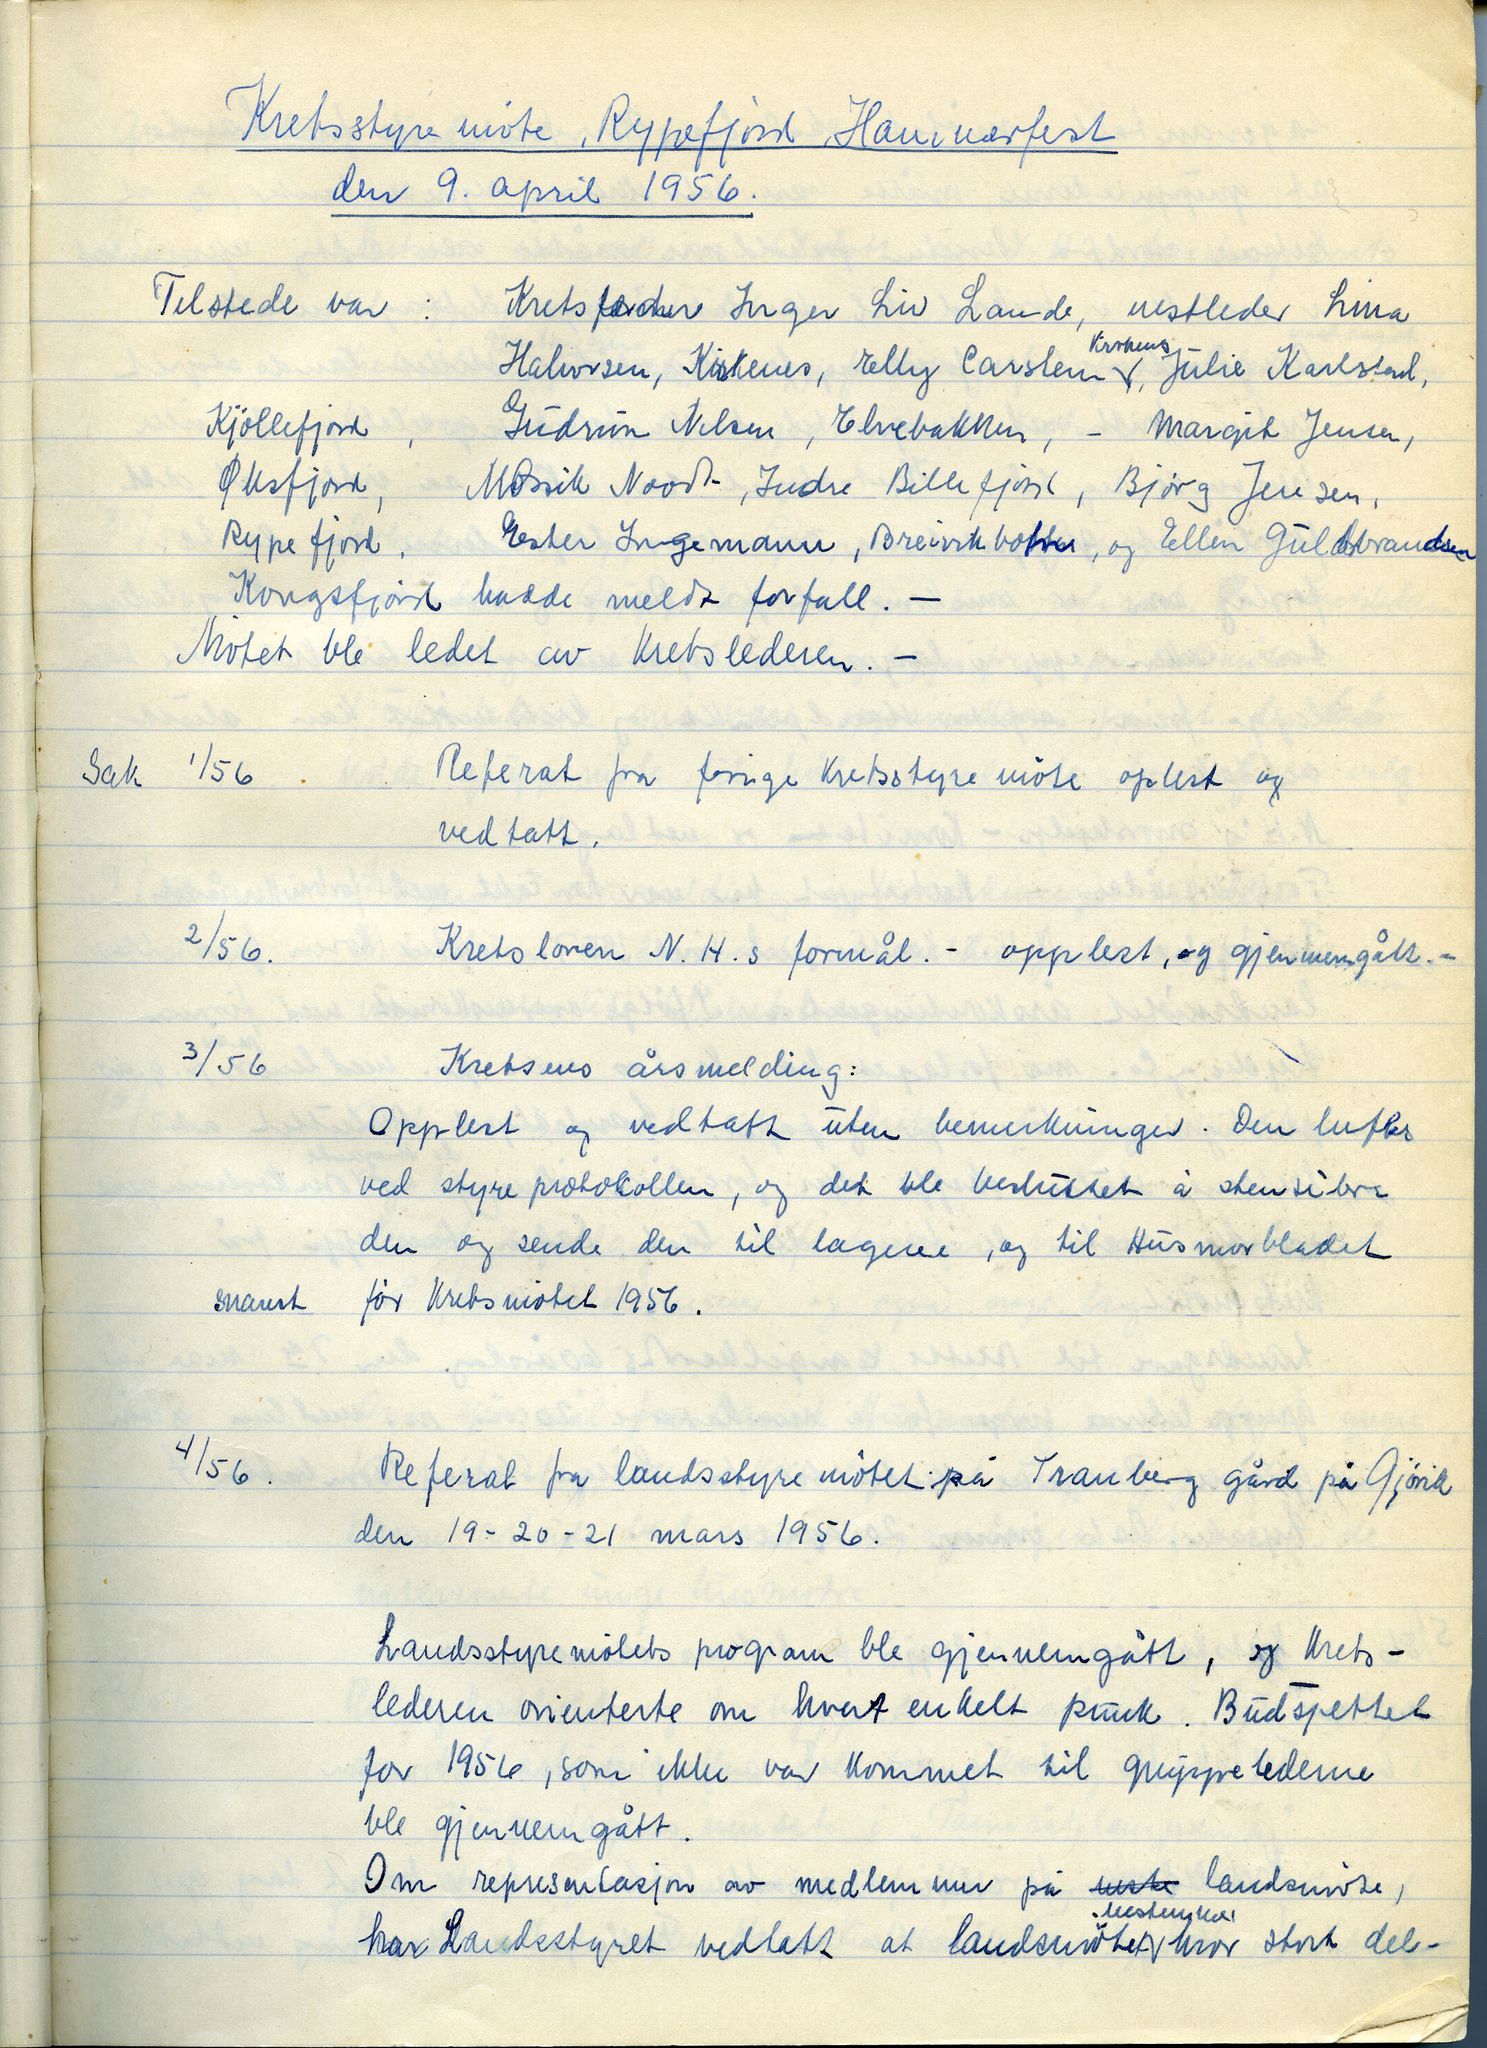 Kretsstyremöte, Rypefjord, Hammerfest
den 9. april 1956.
Tilstede var : Kretsleder Inger Liv Lande, nestleder Lina
Halvorsen, Kirkenes, Elly Carstens Krokens, Julie Karlstad,
Kjöllefjord, Gudrun Nilsen, Elvebakken, - Margit Jensen,
Øksfjord, Måssik Noodt, Indre Billefjord, Bjørg Jensen,
Rypefjord, Ester Ingemann, Breivikbotn, og Ellen Guldbrandsen
Kongsfjord hadde meldt forfall. -
Mötet ble ledet av Kretslederen. -
Sak 1/56 Referat fra forrige Kretsstyremöte oplest og
vedtatt.
2/56. Kretsloven N.H.s formål. - opplest, og gjennemgått. -
3/56 Kretsens årsmelding:
Opplest og vedtatt uten bemerkninger. Den heftes
ved styreprotokollen, og det ble besluttet å stensilere
den og sende den til lagene, og til Husmorbladet
snarest för Kretsmötet 1956.
4/56. Referat fra landsstyremötet på Tranberg gård på Gjövik
den 19-20-21 mars 1956.
Landsstyremötets program ble gjennemgått, og Krets-
lederen orienterte om hvert enkelt punk. Budsjettet
for 1956, som ikke var kommet til gruppelederne
ble gjennemgått.
Om representasjon av medlemmer på neste landsmöte,
har Landsstyret vedtatt at landsmötet bestemmer hvor stort del-